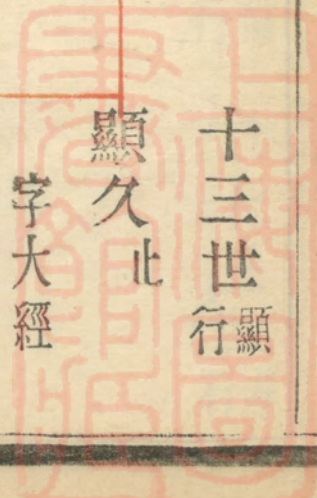 十三世顯行
顯久止
字大經